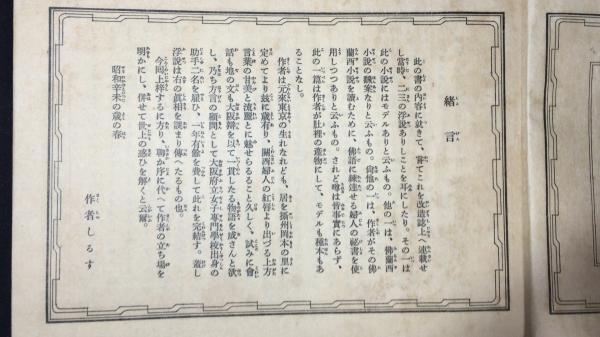 緒言
此の書の内容に就きて、嘗てこれを改造誌上へ連載せ
し當時、二三の浮説ありしことを耳にしたり。その一は
此の小説にはモデルありと云ふもの。他の一は、佛蘭西
小説の飜案なりと云ふもの。尙他の一は、作者がその佛
蘭西小説を讀むために、佛語に練達せる婦人の祕書を使
用しつつありと云ふもの。されど噂は皆事實にあらず、
此の一篇は作者が肚裡の產物にして、モデルも種本もあ
ることなし。
作者は元來東京の生れなれども、居を攝州岡本の里に
定めてより茲に歲有り、關西婦人の紅唇より出づる上方
言葉の甘美と流麗とに魅せらるること久しく、試みに會
話も地の文も大阪辯を以て一貫したる物語を成さんと欲
し、乃ち方言の顧問として大阪府立女子專門學校出身の
助手二名を雇ひ、一年有餘を費して此れを完結す。蓋し
浮説は右の眞相を誤まり傳へたるもの也。
今囘上梓するに方り、聊か序に代へて作者の立ち場を
明かにし、併せて世上の惑ひを解くと云爾。
昭和辛未の歲の春
作者しるす